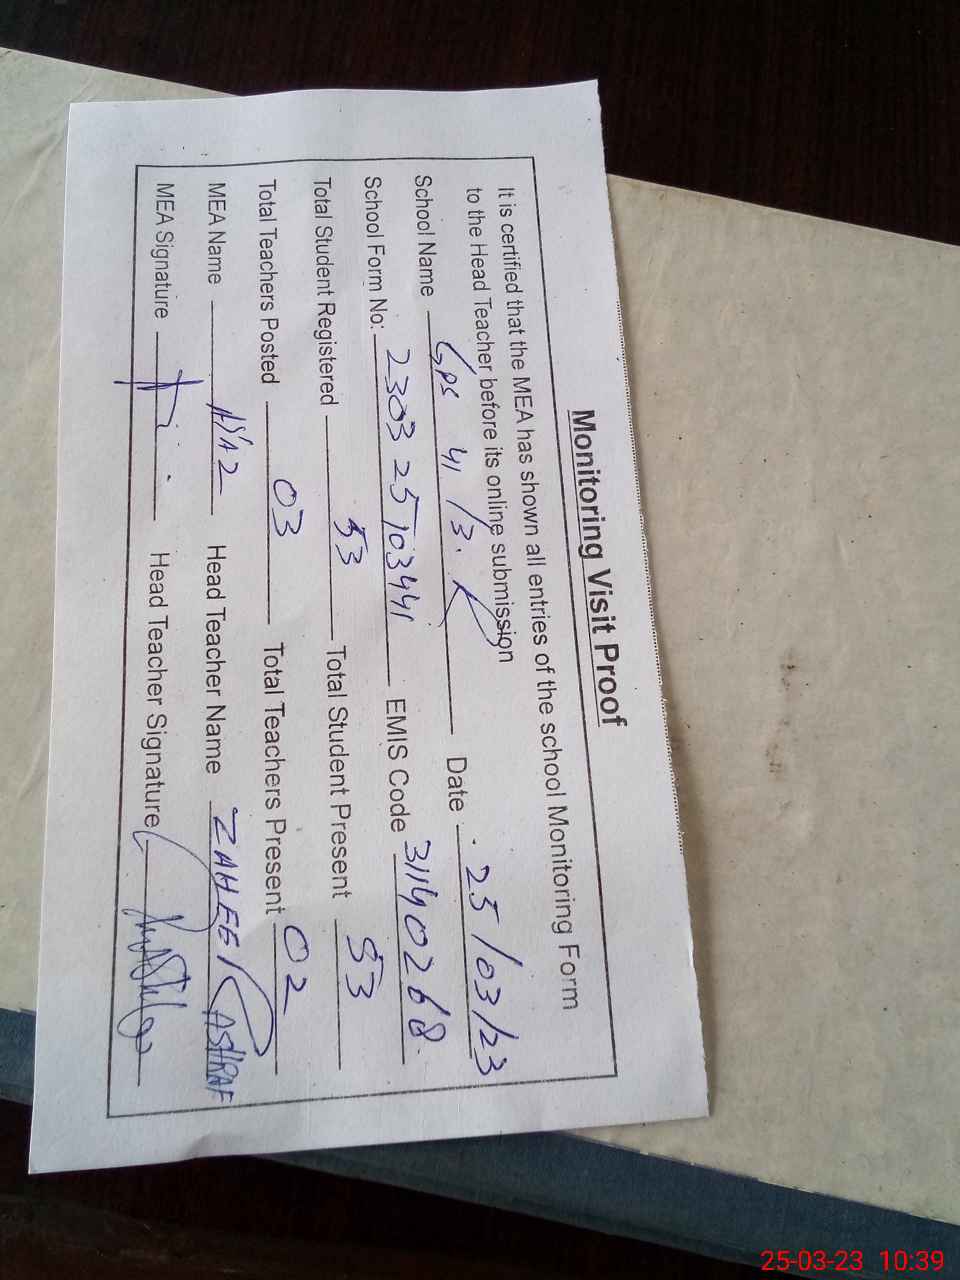 Monitoring Visit Proof
It is certified that the MEA has shown all entries of the school Monitoring Form
to the Head Teacher before its online submission
School Name GPS 41/3.R Date 25/03/23
School Form No: 2303 25103441 EMIS Code 31140268
Total Student Registered 53 Total Student Present 53
Total Teachers Posted 03 Total Teachers Present 02
MEA Name Head Teacher Name ZAHEER ASHRAF
MEA Signature Head Teacher Signature
25-03-23 10:39